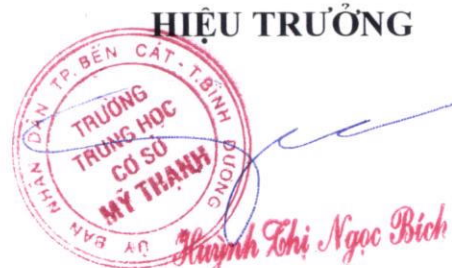 HIỆU TRƯỞNG
ỦY BAN NHÂN DÂN TP. BẾN CÁT - T. BÌNH DƯƠNG
TRƯỜNG
TRUNG HỌC
CƠ SỞ
MỸ THẠNH
Huỳnh Thị Ngọc Bích